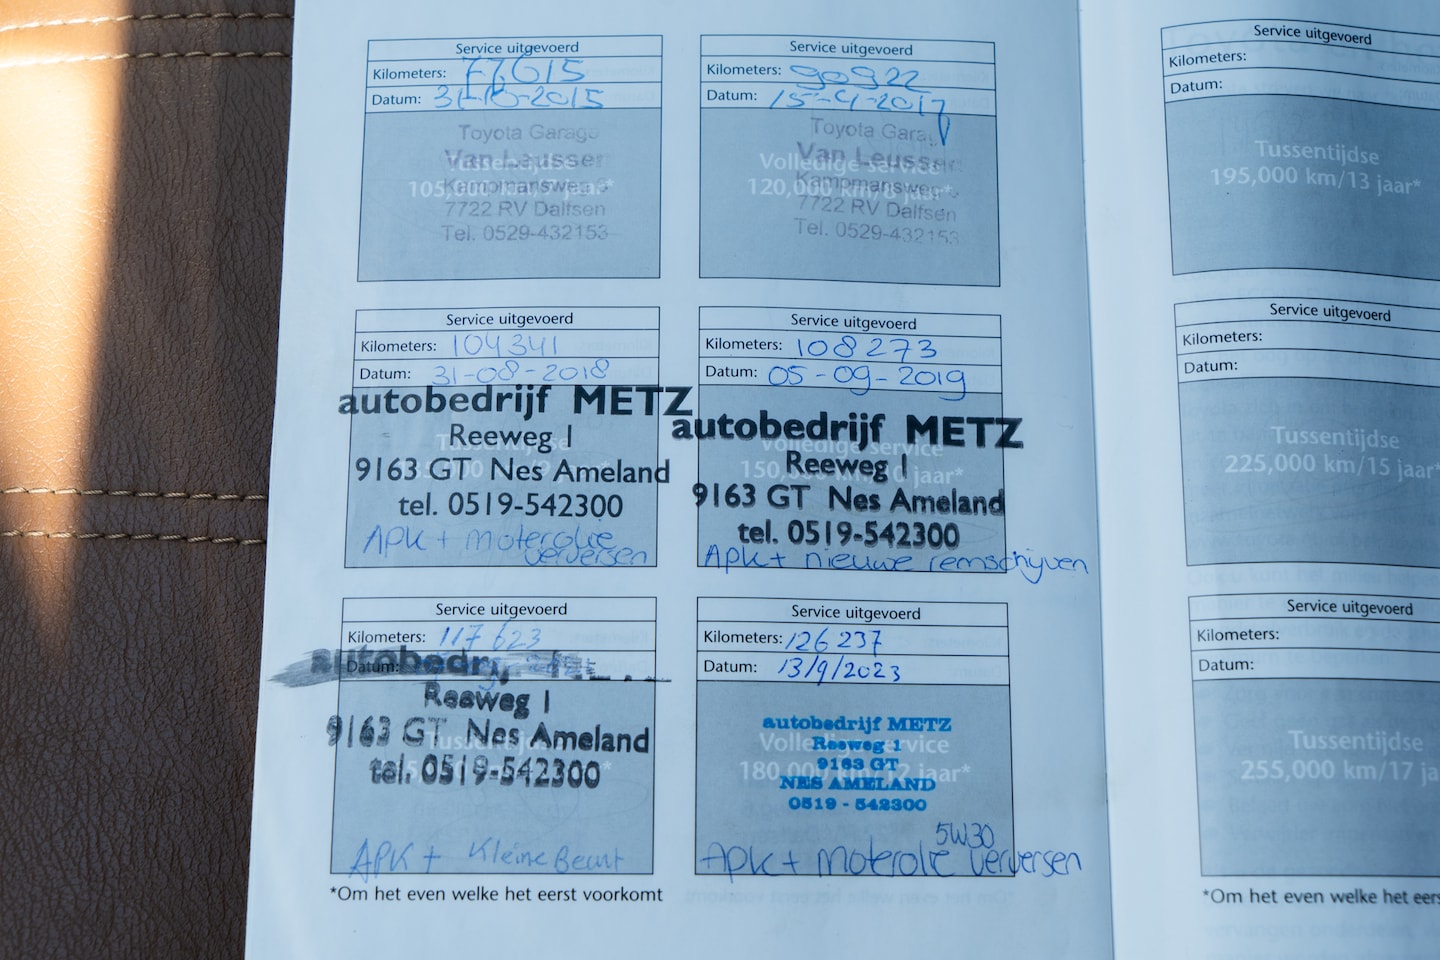 Service uitgevoerd
Kilometers: 77615
Datum: 31-10-2015
Toyota Garage
Van Leussen
Tussentijdse
105,000 km/7 jaar*
Kampmansweg
7722 RV Dalfsen
Tel. 0529-432153
Service uitgevoerd
Kilometers: 90922
Datum: 15-4-2017
Toyota Garage
Van Leussen
Volledige service
120,000 km/8 jaar*
Kampmansweg
7722 RV Dalfsen
Tel. 0529-432153
Service uitgevoerd
Kilometers: 104341
Datum: 31-08-2018
autobedrijf METZ
Reeweg 1
Tussentijdse
9163 GT Nes Ameland
tel. 0519-542300
APK + moterolie
verversen
Service uitgevoerd
Kilometers: 108273
Datum: 05-09-2019
autobedrijf METZ
Volledige service
Reeweg 1
150,000 jaar*
9163 GT Nes Ameland
tel. 0519-542300
APK + nieuwe remschijven
Service uitgevoerd
Kilometers: 117623
Datum:
autobedrijf
Reeweg 1
9163 GT Nes Ameland
Tussentijdse
tel. 0519-542300
APK + Kleine Beurt
*Om het even welke het eerst voorkomt
Service uitgevoerd
Kilometers: 126237
Datum: 13/9/2023
autobedrijf METZ
Reeweg 1
Volledige service
9163 GT
180,000 km/12 jaar*
NES AMELAND
0519 - 542300
5W30
APK + moterolie verversen
Service uitgevoerd
Kilometers:
Datum:
Tussentijdse
195,000 km/13 jaar*
Service uitgevoerd
Kilometers:
Datum:
Tussentijdse
225,000 km/15 jaar*
Service uitgevoerd
Kilometers:
Datum:
Tussentijdse
255,000 km/17 ja
*Om het even welke het eers